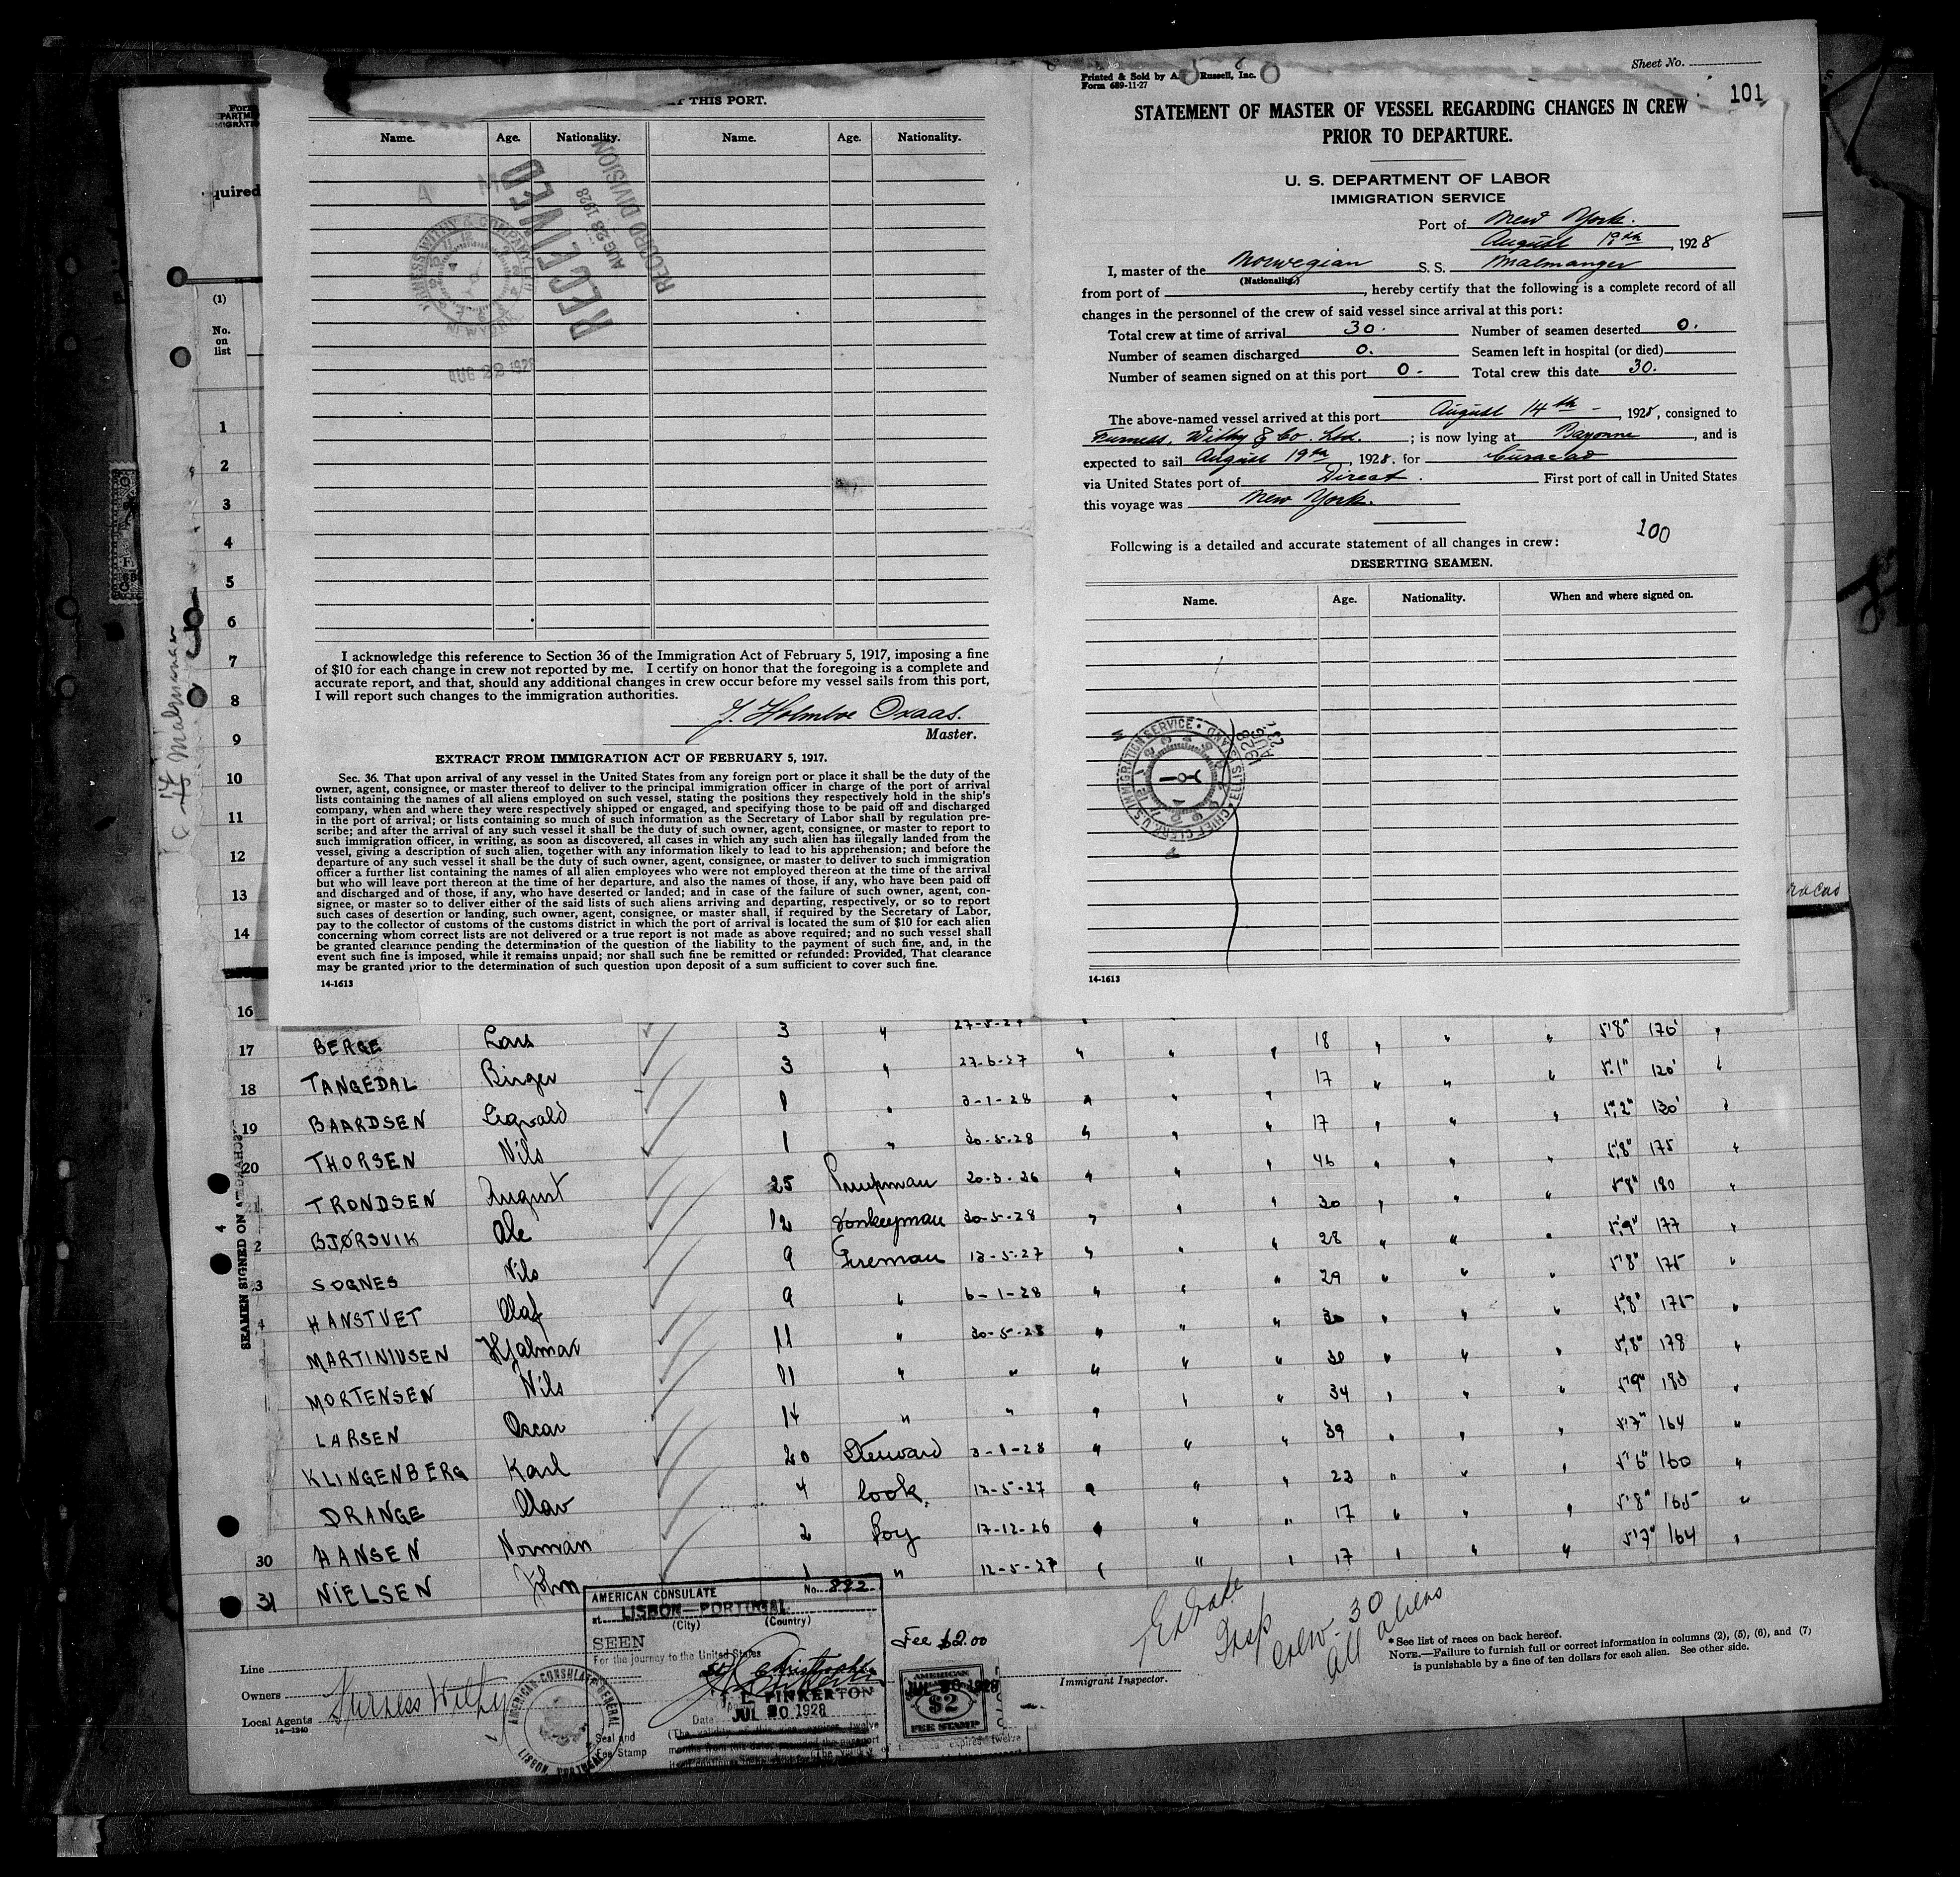 Sheet No.
101
Printed & Sold by A. Russell, Inc.
Form 689-11-27
STATEMENT OF MASTER OF VESSEL REGARDING CHANGES IN CREW
PRIOR TO DEPARTURE.
U. S. DEPARTMENT OF LABOR
IMMIGRATION SERVICE
Port of New York.
August 19th, 1928
I, master of the Norwegian S. S. Malmanger
(Nationality)
from port of , hereby certify that the following is a complete record of all
changes in the personnel of the crew of said vessel since arrival at this port:
Total crew at time of arrival 30. Number of seamen deserted 0.
Number of seamen discharged 0. Seamen left in hospital (or died)
Number of seamen signed on at this port 0- Total crew this date 30.
The above-named vessel arrived at this port August 14th -, 1928, consigned to
Furness, Withy & Co. Ltd. ; is now lying at Bayonne, and is
expected to sail August 19th, 1928, for Curacao
via United States port of Direct. First port of call in United States
this voyage was New York.
100
Following is a detailed and accurate statement of all changes in crew:
DESERTING SEAMEN.
Name. Age. Nationality. When and where signed on.
CHIEF CLERK U.S. IMMIGRATION SERVICE
1928 AUG 23
14-1613
THIS PORT.
Name. Age. Nationality. Name. Age. Nationality.
RECEIVED
AUG 28 1928
RECORD DIVISION
FURNESS WITHY & COMPANY LTD
NEW YORK
AUG 22 1928
I acknowledge this reference to Section 36 of the Immigration Act of February 5, 1917, imposing a fine
of $10 for each change in crew not reported by me. I certify on honor that the foregoing is a complete and
accurate report, and that, should any additional changes in crew occur before my vessel sails from this port,
I will report such changes to the immigration authorities.
J. Holmboe Oxaas.
Master.
EXTRACT FROM IMMIGRATION ACT OF FEBRUARY 5, 1917.
Sec. 36. That upon arrival of any vessel in the United States from any foreign port or place it shall be the duty of the
owner, agent, consignee, or master thereof to deliver to the principal immigration officer in charge of the port of arrival
lists containing the names of all aliens employed on such vessel, stating the positions they respectively hold in the ship's
company, when and where they were respectively shipped or engaged, and specifying those to be paid off and discharged
in the port of arrival; or lists containing so much of such information as the Secretary of Labor shall by regulation pre-
scribe; and after the arrival of any such vessel it shall be the duty of such owner, agent, consignee, or master to report to
such immigration officer, in writing, as soon as discovered, all cases in which any such alien has illegally landed from the
vessel, giving a description of such alien, together with any information likely to lead to his apprehension; and before the
departure of any such vessel it shall be the duty of such owner, agent, consignee, or master to deliver to such immigration
officer a further list containing the names of all alien employees who were not employed thereon at the time of the arrival
but who will leave port thereon at the time of her departure, and also the names of those, if any, who have been paid off
and discharged and of those, if any, who have deserted or landed; and in case of the failure of such owner, agent, con-
signee, or master so to deliver either of the said lists of such aliens arriving and departing, respectively, or so to report
such cases of desertion or landing, such owner, agent, consignee, or master shall, if required by the Secretary of Labor,
pay to the collector of customs of the customs district in which the port of arrival is located the sum of $10 for each alien
concerning whom correct lists are not delivered or a true report is not made as above required; and no such vessel shall
be granted clearance pending the determination of the question of the liability to the payment of such fine, and, in the
event such fine is imposed, while it remains unpaid; nor shall such fine be remitted or refunded: Provided, That clearance
may be granted prior to the determination of such question upon deposit of a sum sufficient to cover such fine.
14-1613
quired
(1)
No.
on
list
1
2
3
4
5
6
7
8
9
10
11
12
13
14
16
Malmanger
SEAMEN SIGNED ON AT
17 BERGE Lars 3 " 27-5-27 " " " 18 " " " 5'8" 170'
18 TANGEDAL Birger 3 " 27-6-27 " " " 17 " " " 5'1" 120'
19 BAARDSEN Sigvald 1 " 3-1-28 " " " 17 " " " 5'2" 130'
20 THORSEN Nils 1 " 30-5-28 " " " 46 " " " 5'8" 175
21 TRONDSEN August 25 Pumpman 20-3-26 " " " 30 " " " 5'8" 180
2 BJØRSVIK Ole 12 Donkeyman 30-5-28 " " " 28 " " " 5'9" 177
3 SOGNES Nils 9 Fireman 13-5-27 " " " 29 " " " 5'8" 175
4 HANSTVET Olaf 9 " 6-1-28 " " " 30 " " " 5'8" 175
MARTINIUSEN Hjalmar 11 " 30-5-28 " " " 30 " " " 5'8" 178
MORTENSEN Nils 11 " " " " " 34 " " " 5'9" 183
LARSEN Oscar 14 " " " " " 39 " " " 5'7" 164
KLINGENBERG Karl 20 Steward 3-1-28 " " " 23 " " " 5'6" 160
DRANGE Olav 4 Cook 12-5-27 " " " 17 " " " 5'8" 165
30 HANSEN Norman 2 Boy 17-12-26 " " " 17 " " " 5'7" 164
31 NIELSEN John 1 " 12-5-27
AMERICAN CONSULATE No. 892
at LISBON—PORTUGAL
(City) (Country)
SEEN
For the journey to the United States
PINKERTON
Date JUL 20 1928
Seal and
Fee Stamp
AMERICAN CONSULATE GENERAL
LISBON, PORTUGAL
Fee $2.00
AMERICAN
JUL 20 1928
$2
FEE STAMP
Line
Owners
Local Agents Furness Withy
14—1240
Insp
Crew - 30
all aliens
Immigrant Inspector.
* See list of races on back hereof.
NOTE.—Failure to furnish full or correct information in columns (2), (5), (6), and (7)
is punishable by a fine of ten dollars for each alien. See other side.